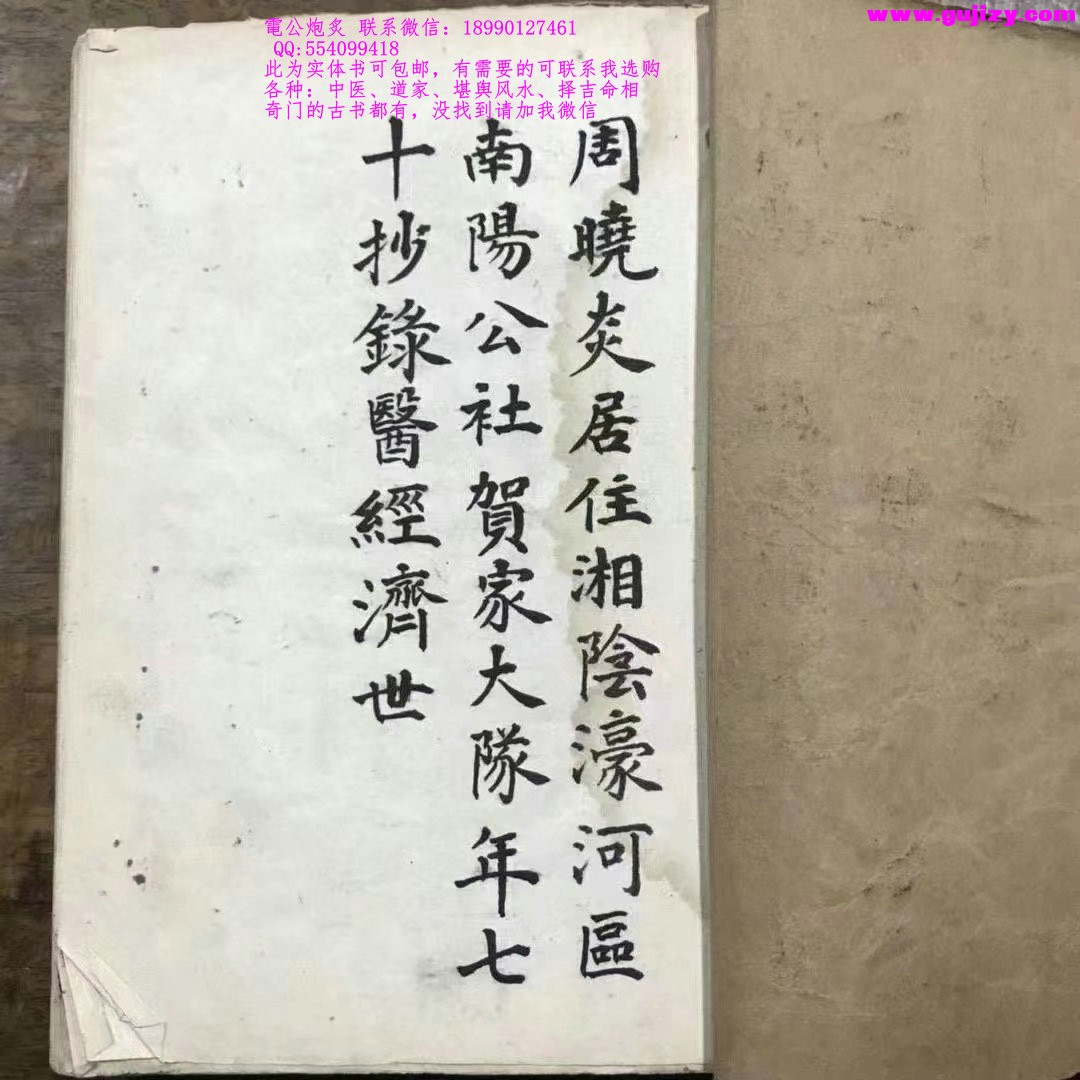 電公炮炙 联系微信：18990127461
QQ:554099418
此为实体书可包邮，有需要的可联系我选购
各种：中医、道家、堪舆风水、择吉命相
奇门的古书都有，没找到请加我微信
www.gujizy.com
周曉炎居住湘陰濠河區
南陽公社賀家大隊年七
十抄錄醫經濟世